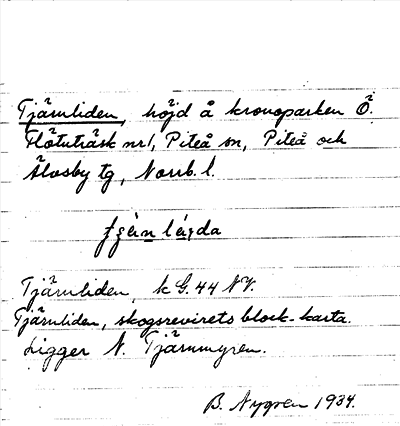 Tjärnliden, höjd å kronoparken Ö.
Flötuträsk nr 1, Piteå sn, Piteå och
Älvsby tg, Norrb. l.
Tjärnliden, k G. 44 NV.
Tjärnliden, skogsrevirets block-karta.
Ligger N. Tjärnmyren.
B. Nygren 1934.